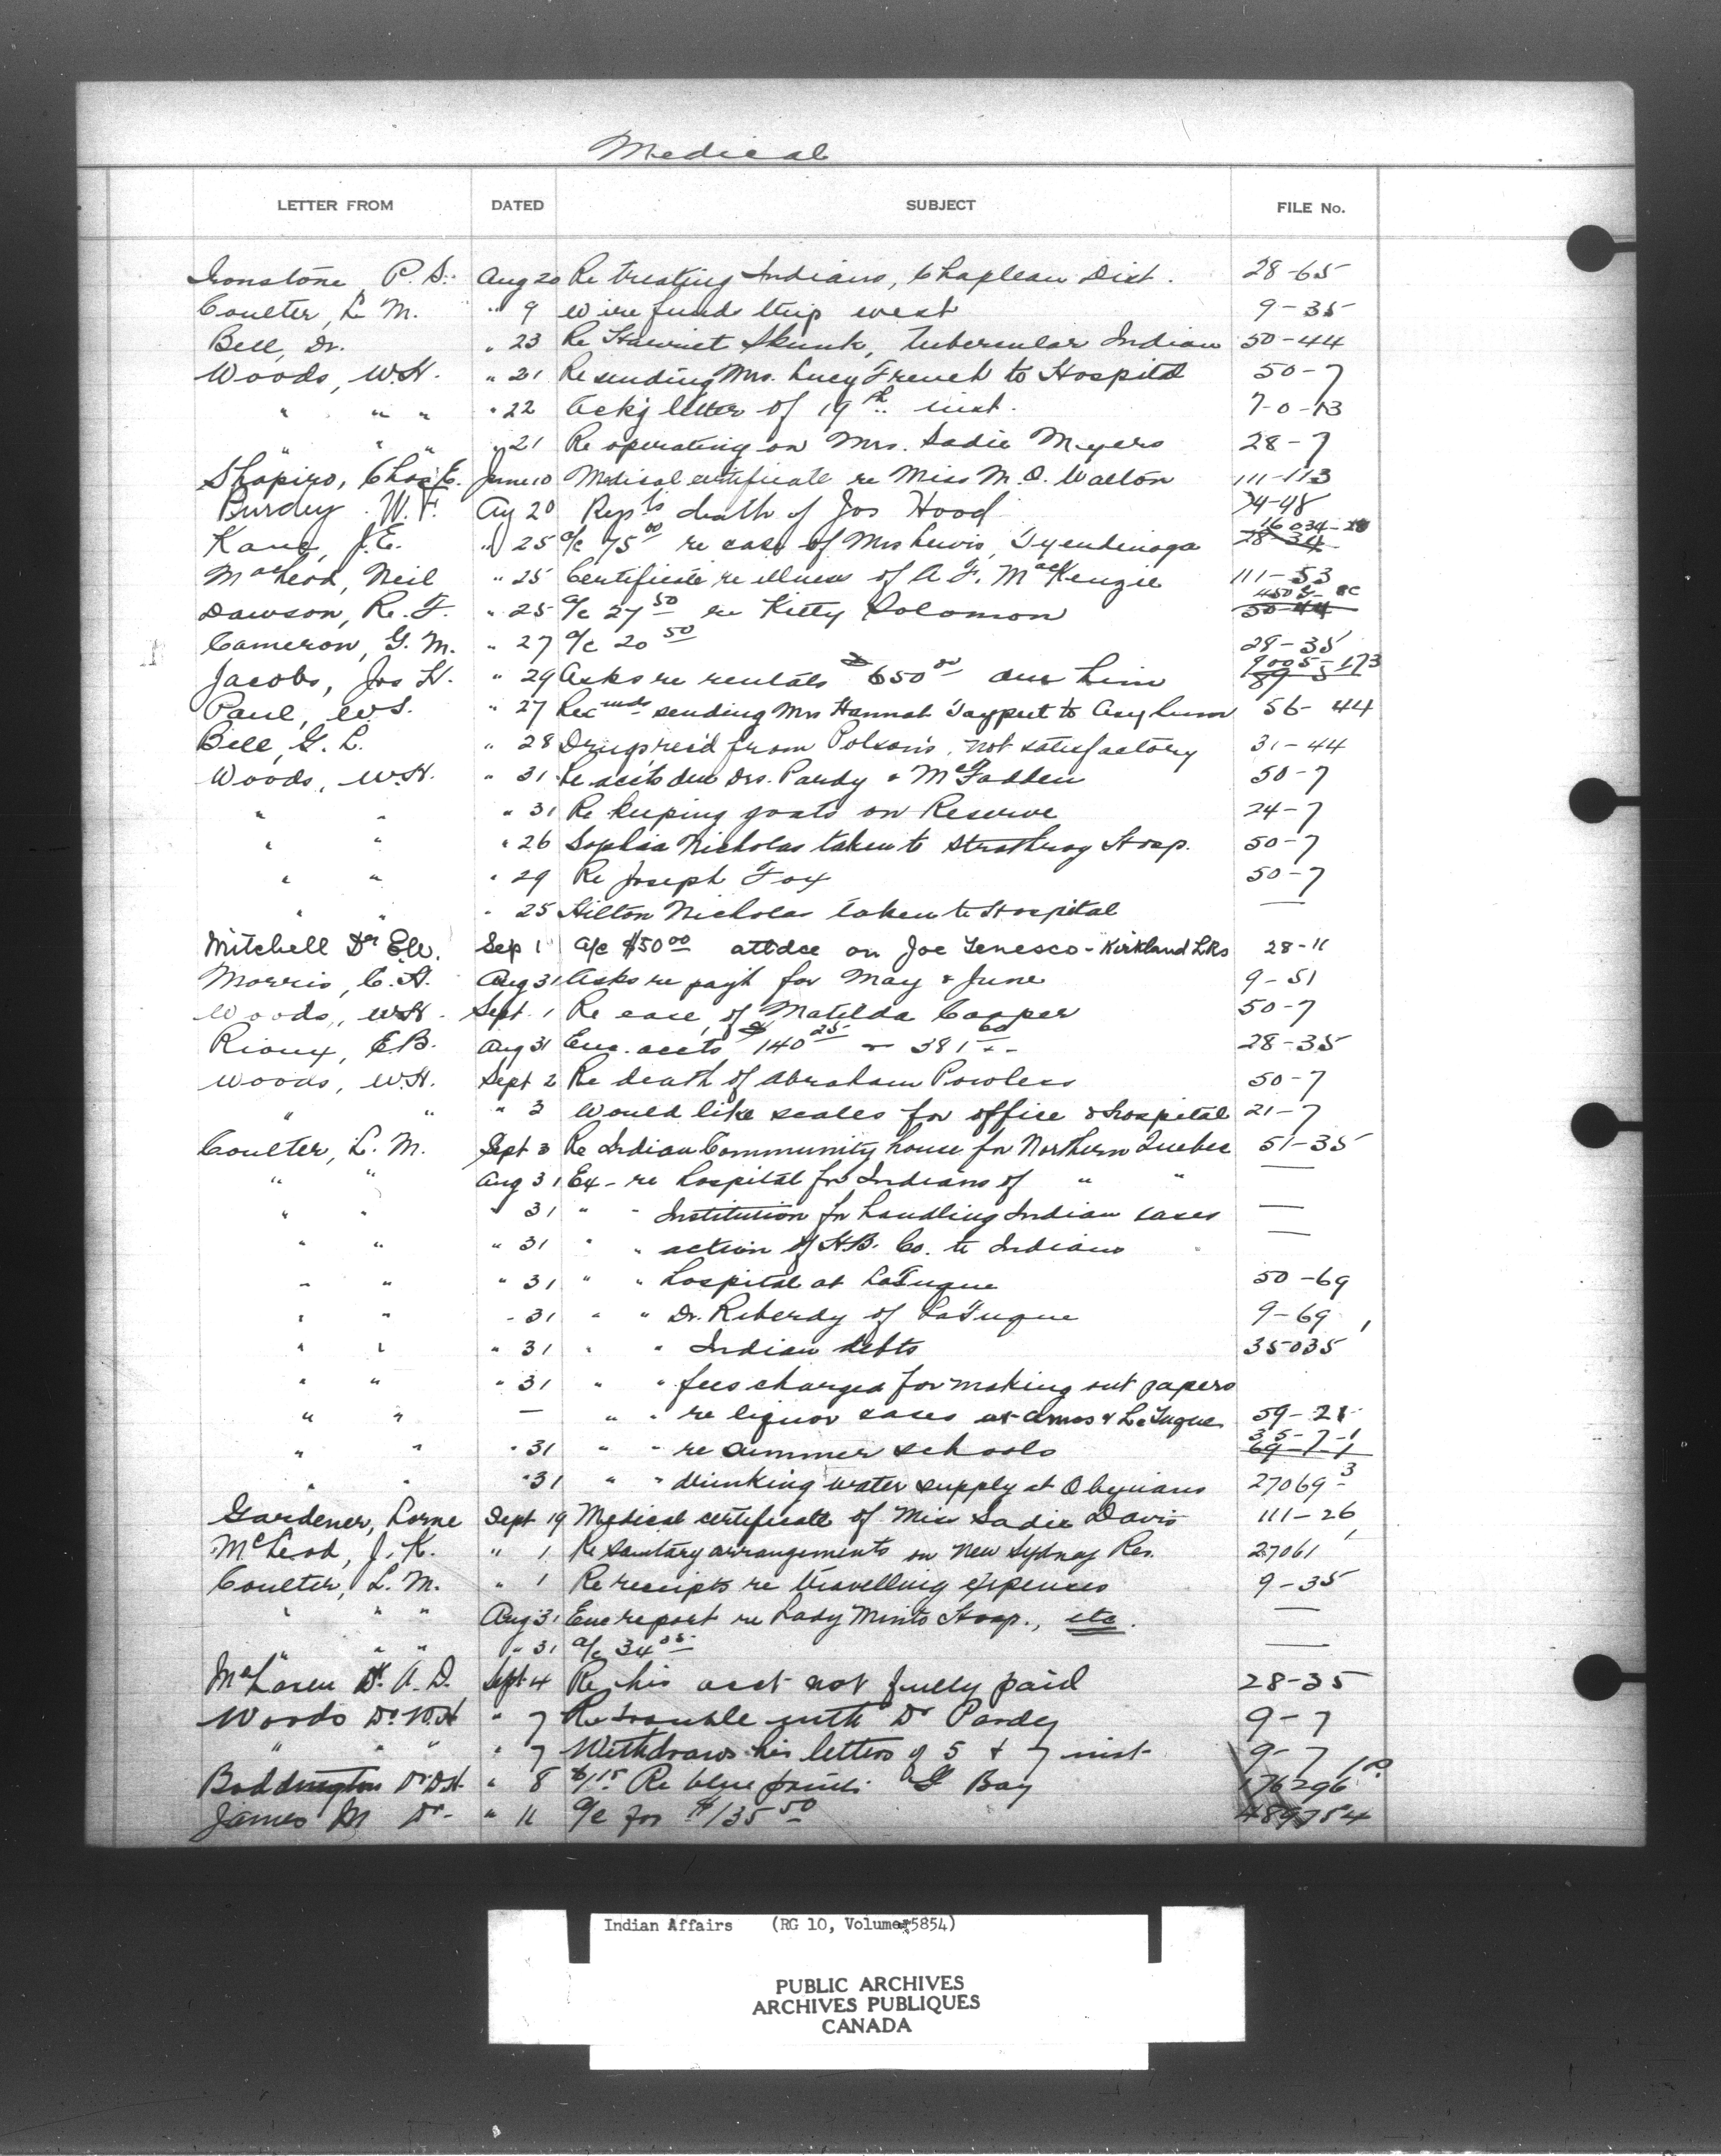 Medical
LETTER FROM DATED SUBJECT FILE No.
Ironstone, P. S. Aug 20 Re treating Indians, Chapleau Dist. 28-65
Coulter, L. M. " 9 Wire funds trip west 9-35
Bell, Dr. " 23 Re Harriet Skunk, Tubercular Indian 50-44
Woods, W.H. " 21 Re sending Mrs. Lucy French to Hospital 50-7
" " " " 22 Ack'g letter of 19th inst. 7-0-13
" " " " 21 Re operating on Mrs. Sadie Meyers 28-7
Shapiro, Chas E. June 10 Medical certificate re Miss M. O. Walton 111-113
Burdey W. F. Aug 20 Repts death of Jos Hood 74-48
Kane, J.E. " 25 a/c 75 00 re case of Mrs Lewis, Tyendinaga 28-34 16034-
MacLeod, Neil " 25 Certificate re illness of A. F. MacKenzie 111-53
Dawson, Re. F. " 25 a/c 27 50 re Kitty Solomon 50-44
Cameron, G. M. " 27 a/c 20 50 28-35
Jacobs, Jos H. " 29 Asks re rentals $650 00 due him 9005-173
Paul, W.S. " 27 Recmds sending Mrs Hannah Taypeet to Asylum 56-44
Bell, G. L. " 28 Drugs rec'd from Polson's, not satisfactory 31-44
Woods, W.H. " 31 Re accts due Drs. Pardy & McFadden 50-7
" " " 31 Re keeping goats on Reserve 24-7
" " " 26 Sophia Nicholas taken to Strathroy Hosp. 50-7
" " " 29 Re Joseph Fox 50-7
" " " 25 Hilton Nicholas taken to Hospital —
Mitchell Dr E.W. Sep 1 a/c $50 00 attdce on Joe Tenesco - Kirkland Lks 28-11
Morris, C.A. Aug 31 Asks re pay't for May & June 9-51
Woods, W.H. Sept. 1 Re case of Matilda Cooper 50-7
Rioux, E.B. Aug 31 Enc. accts $140 25 & 381 60 28-35
Woods, W.H. Sept 2 Re death of Abraham Powless 50-7
" " " 3 Would like scales for office & hospital 21-7
Coulter, L. M. Sept 3 Re Indian Community house for Northern Quebec 51-35
" " Aug 31 Ex- re hospital for Indians of " " —
" " " 31 " " Institution for handling Indian cases —
" " " 31 " " action of H.B. Co. to Indians —
" " " 31 " " hospital at LaTuque 50-69
" " " 31 " " Dr. Riberdy of LaTuque 9-69
" " " 31 " " Indian debts 35035
" " " 31 " " fees charged for making out papers
" " — " " re liquor cases at Amos & LaTuque 59-21
" " " 31 " " re summer schools 69-1-1 35-7-1
" " " 31 " " drinking water supply at Obijuans 27069-3
Gardener, Lorne Sept 19 Medical certificate of Miss Sadie Davis 111-26
McLeod, J. K. " 1 Re sanitary arrangements on New Sydney Res. 27061
Coulter, L. M. " 1 Re receipts re travelling expenses 9-35
" " " Aug 31 Enc report re Lady Minto Hosp., etc. —
" " " " 31 a/c 34 05 —
McLaren Dr. A. D. Sept 4 Re his acct not fully paid 28-35
Woods Dr W.H " 7 Re trouble with Dr Pardy 9-7
" " " " 7 Withdraws his letters of 5 & 7 inst 9-7
Boddington Dr D.H. " 8 $1 15 Re blue prints G Bay 176296
James M Dr - " 11 a/c for $135 50 489754
Indian Affairs (RG 10, Volume 5854)
PUBLIC ARCHIVES
ARCHIVES PUBLIQUES
CANADA